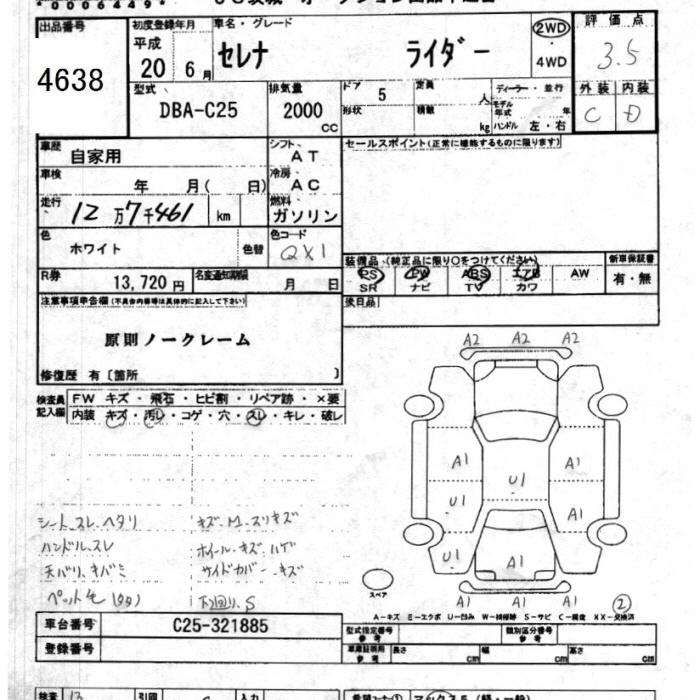 *0006449*
出品番号
4638
初度登録年月
平成
20 6月
車名・グレード
セレナ ライダー
2WD
・
4WD
評価点
3.5
型式
DBA-C25
排気量
2000
CC
ドア 5
形状
定員 人
積載 kg
ディーラー・並行
モデル年式 年
ハンドル 左・右
外装 内装
C D
車歴
自家用
シフト
AT
車検
年 月( 日)
冷房
AC
走行
12万7千461 km
燃料
ガソリン
色
ホワイト
色替
色コード
QX1
R券
13,720円
名変通知期限
月 日
セールスポイント(正常に機能するものに限ります)
装備品・(純正品に限り○をつけてください)
PS PW ABS エアB AW
SR ナビ TV カワ
新車保証書
有・無
後日品
注意事項申告欄(不具合内容等は具体的に記入して下さい)
原則ノークレーム
修復歴 有〔箇所 〕
検査員
記入欄
FW キズ・飛石・ヒビ割・リペア跡・×要
内装 キズ・汚レ・コゲ・穴・スレ・キレ・破レ
シート.スレ.ヘタリ
ハンドル.スレ
天バリ.キバミ
ペット毛
キズ.M.スリキズ
ホイール.キズ.ハゲ
サイドカバー.キズ
下回り.S
A2 A2 A2
A1 U1 A1
U1 A1
U1 A1
A1 A1 A1
スペア
②
A-キズ E-エクボ U-凹み W-補修跡 S-サビ C-腐食 XX-交換済
車台番号
C25-321885
登録番号
型式指定番号
参考
類別区分番号
参考
車庫証明用
参考
長さ cm
幅 cm
高さ cm
検査
引回
入力